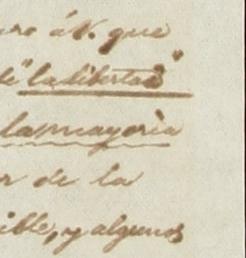 á V. que
"la libertad"
la mayoria
de la
ible, y algunos